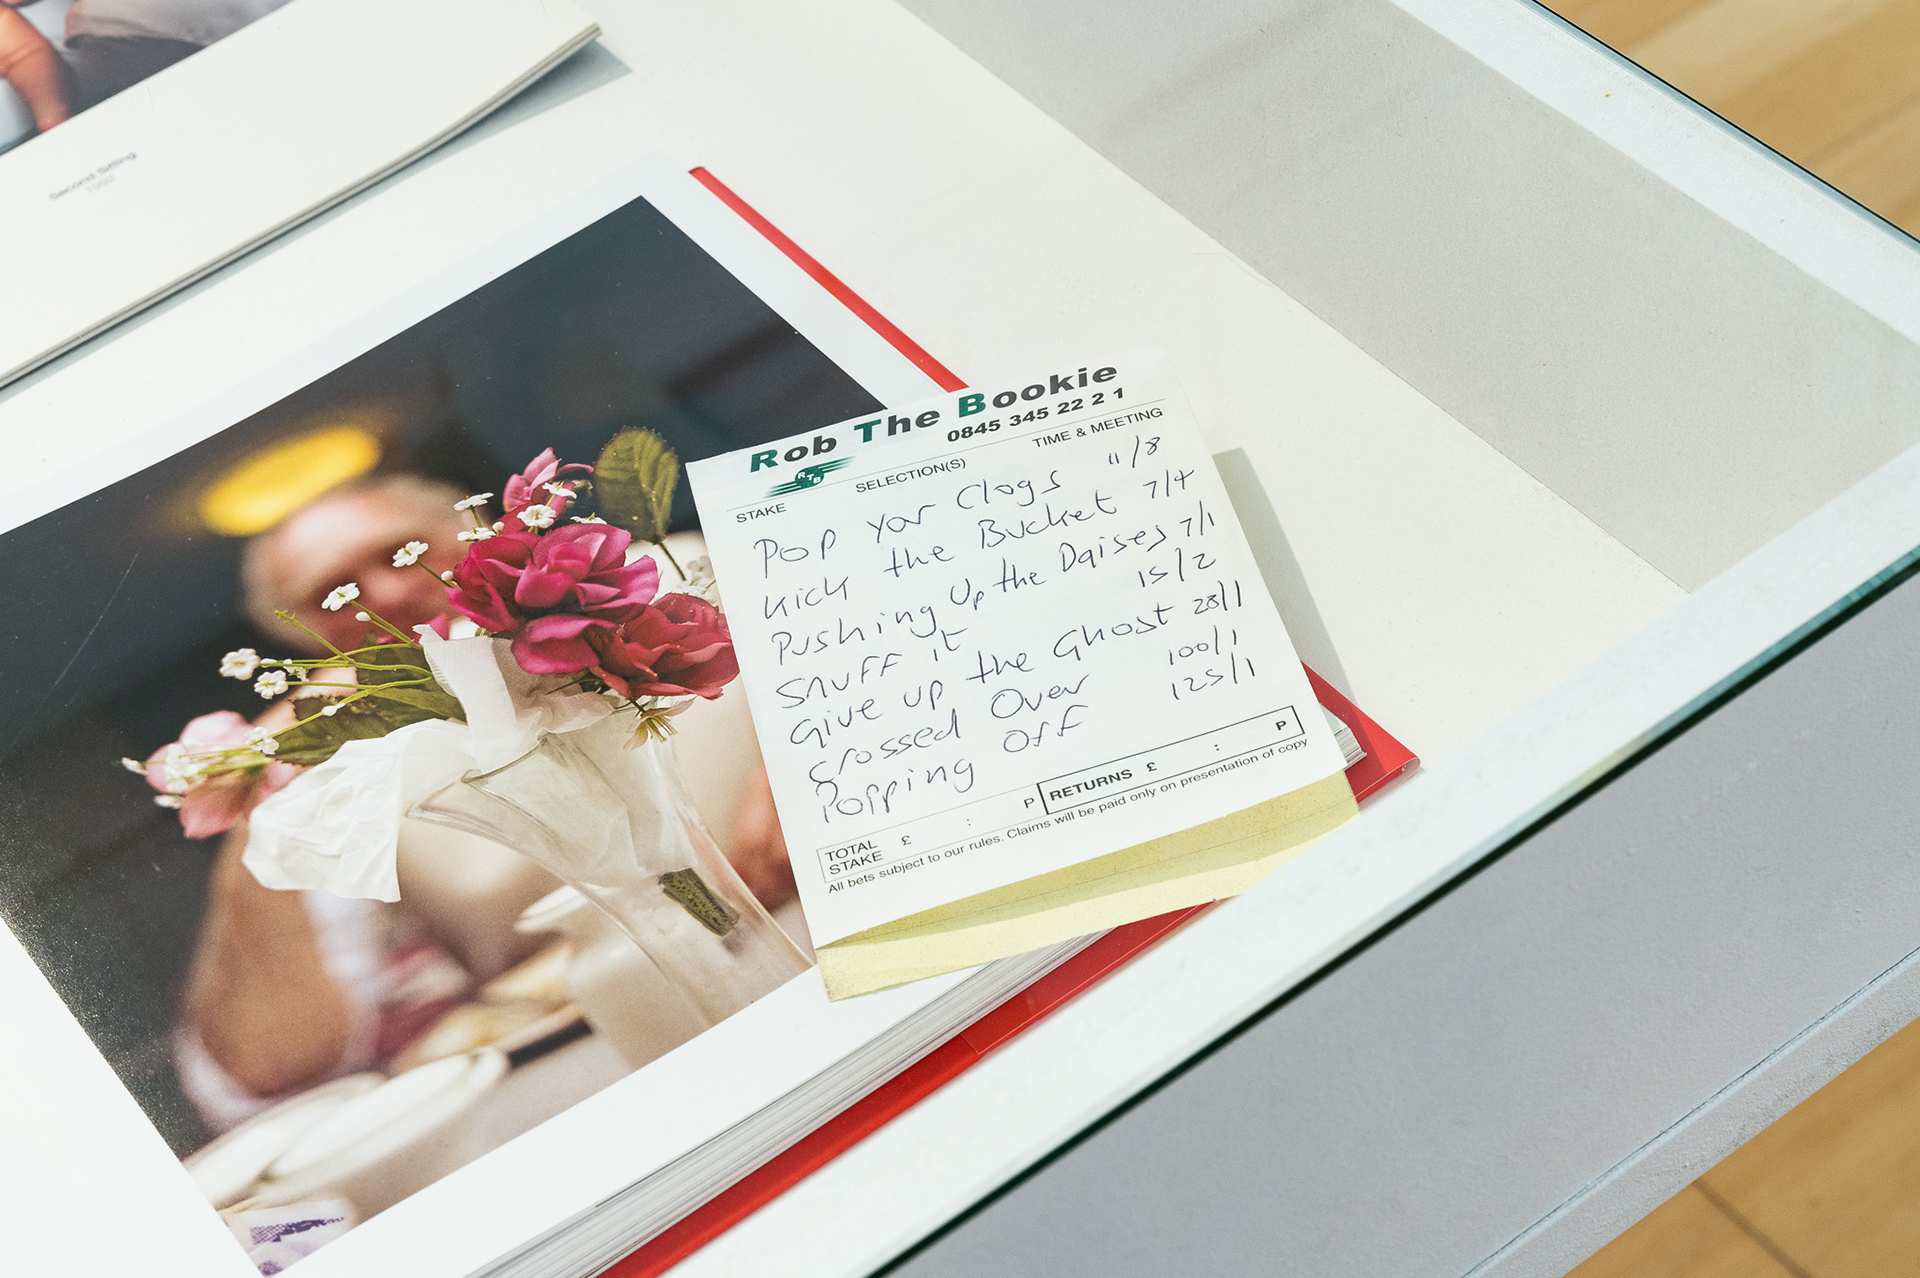 Second Sitting
1992
Rob The Bookie
0845 345 22 2 1
RTB
STAKE SELECTION(S) TIME & MEETING
Pop your Clogs 11/8
Kick the Bucket 7/4
Pushing Up the Daises 7/1
Snuff it 15/2
Give up the Ghost 28/1
Crossed Over 100/1
Popping Off 125/1
TOTAL STAKE £ : P RETURNS £ : P
All bets subject to our rules. Claims will be paid only on presentation of copy